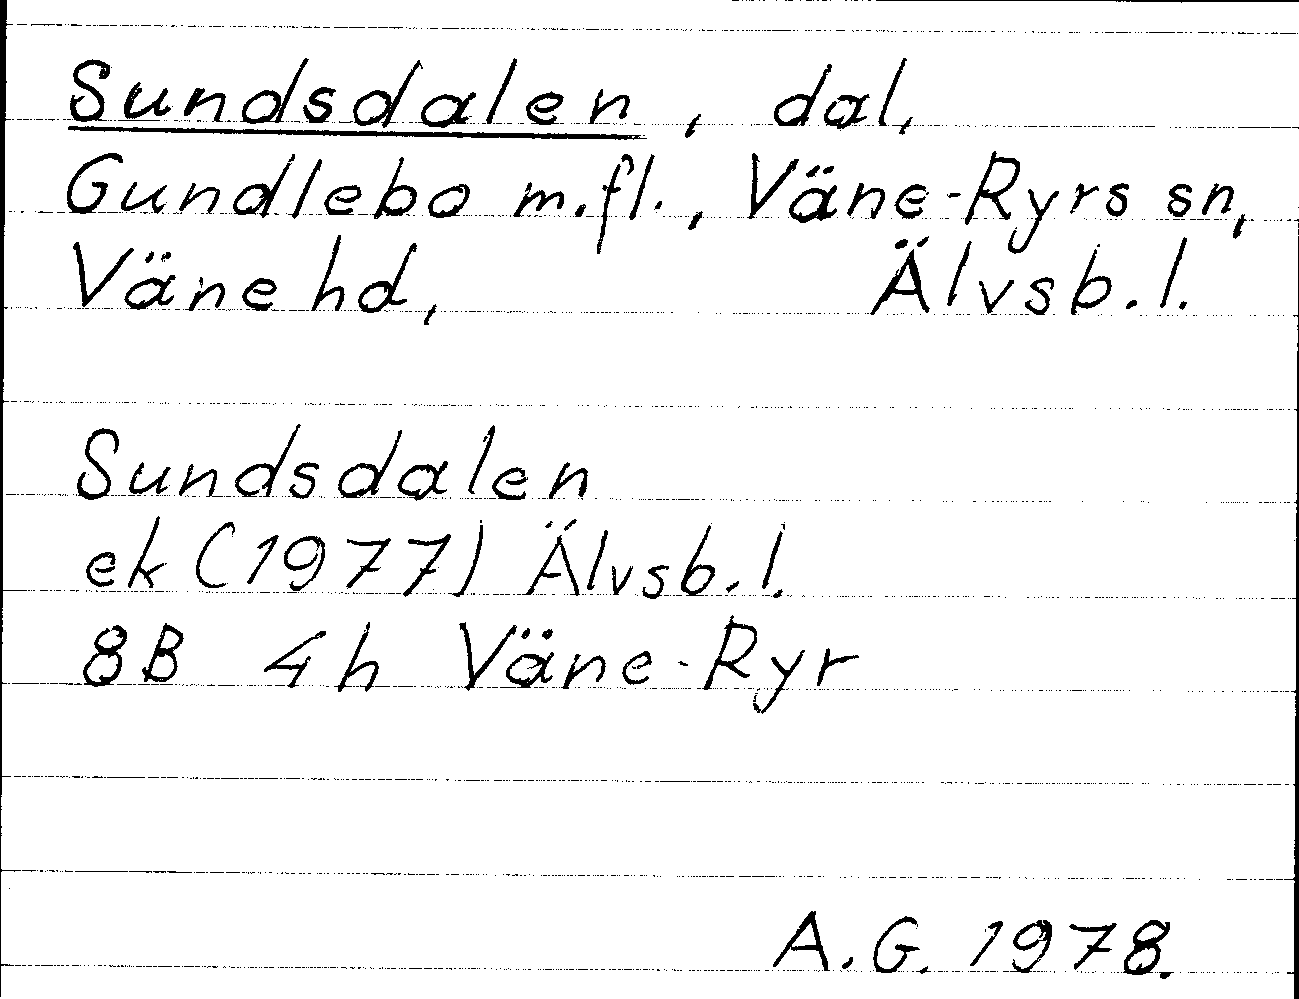 Sundsdalen, dal,
Gundlebo m.fl., Väne-Ryrs sn,
Väne hd, Älvsb.l.
Sundsdalen
ek (1977) Älvsb.l.
8B 4h Väne-Ryr
A.G. 1978.